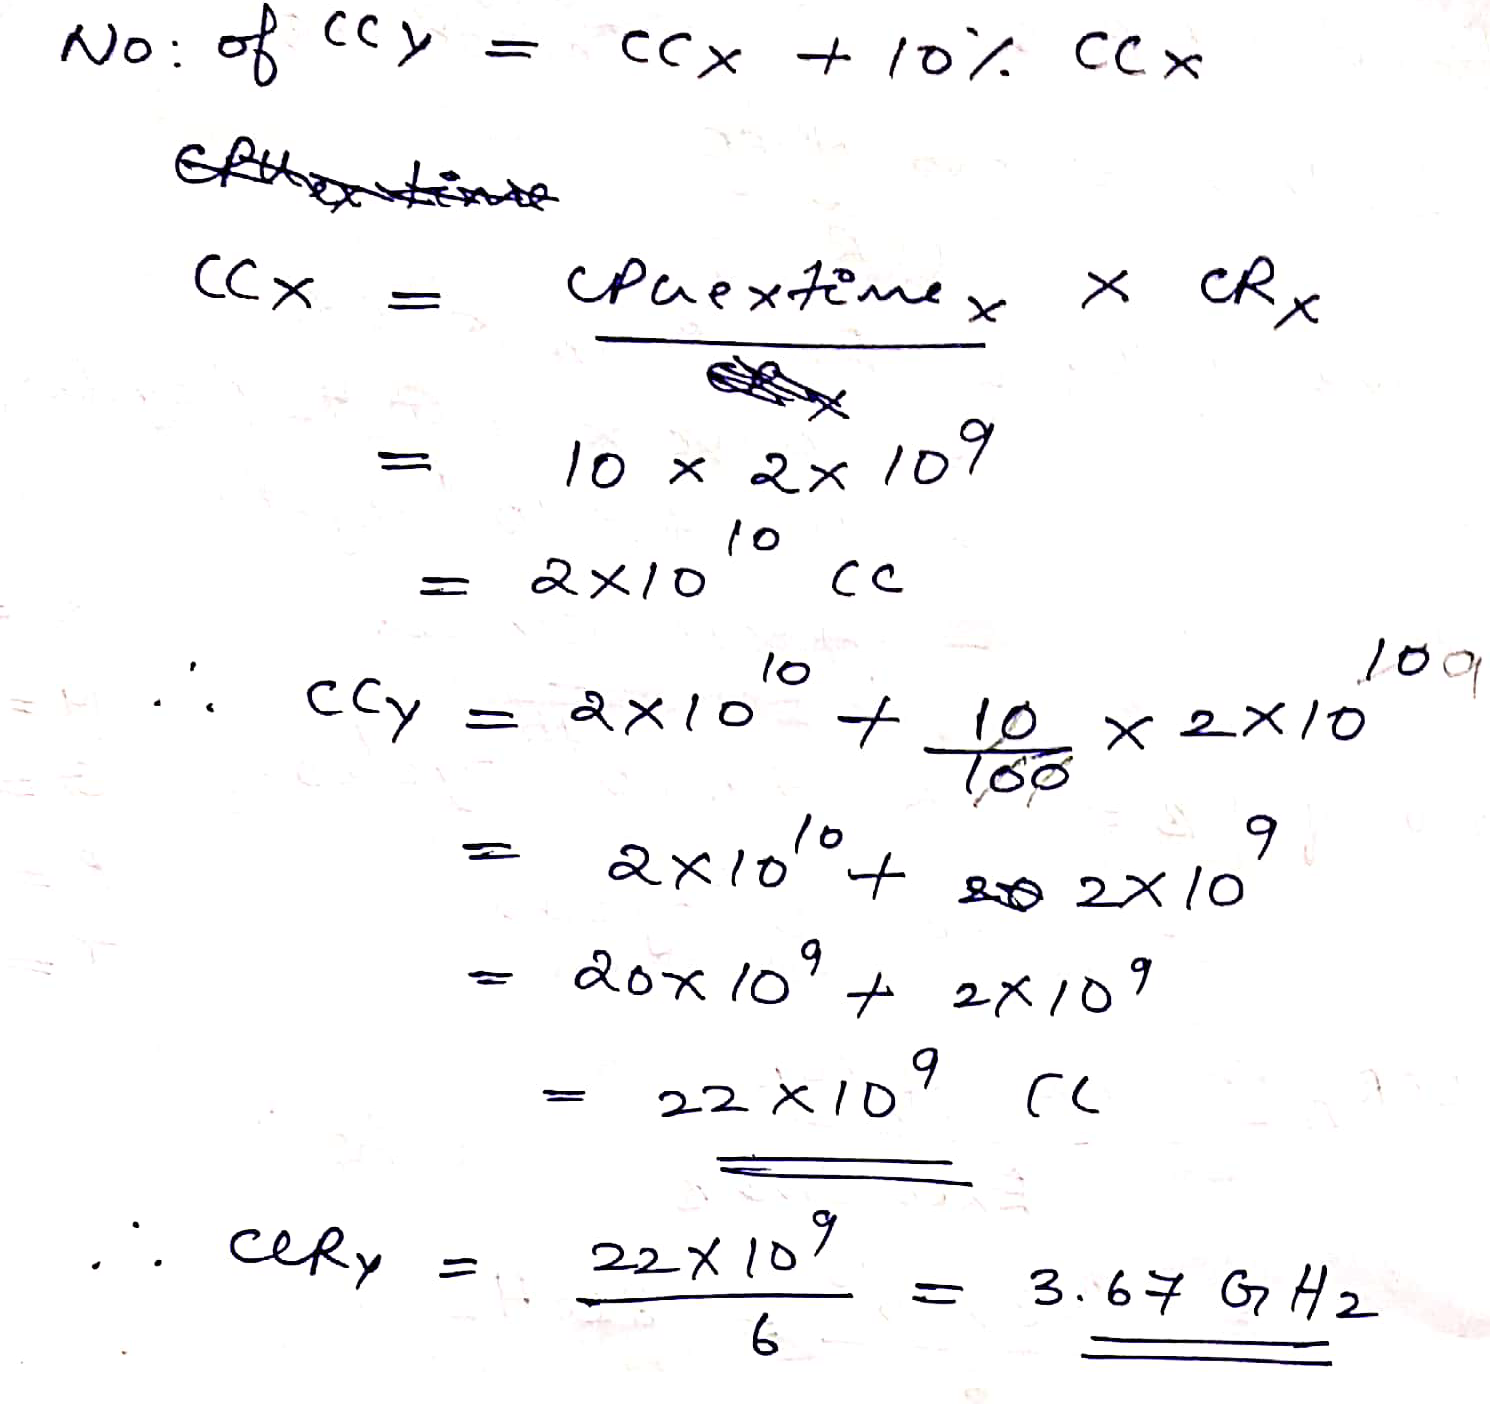 No: of CCY = CCX + 10% CCX
CCX = CPUextime X × CRX
= 10 × 2 × 10^9
= 2×10^10 CC
∴ CCY = 2×10^10 + 10/100 × 2×10^10 9
= 2×10^10 + 2×10^9
= 20×10^9 + 2×10^9
= 22×10^9 CC
∴ CLRY = 22×10^9 / 6 = 3.67 GHz